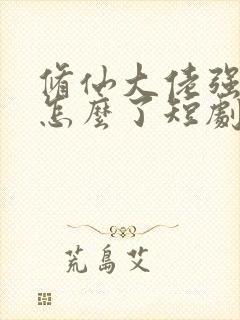 脩仙大佬强
怎麼了短劇
荒島艾